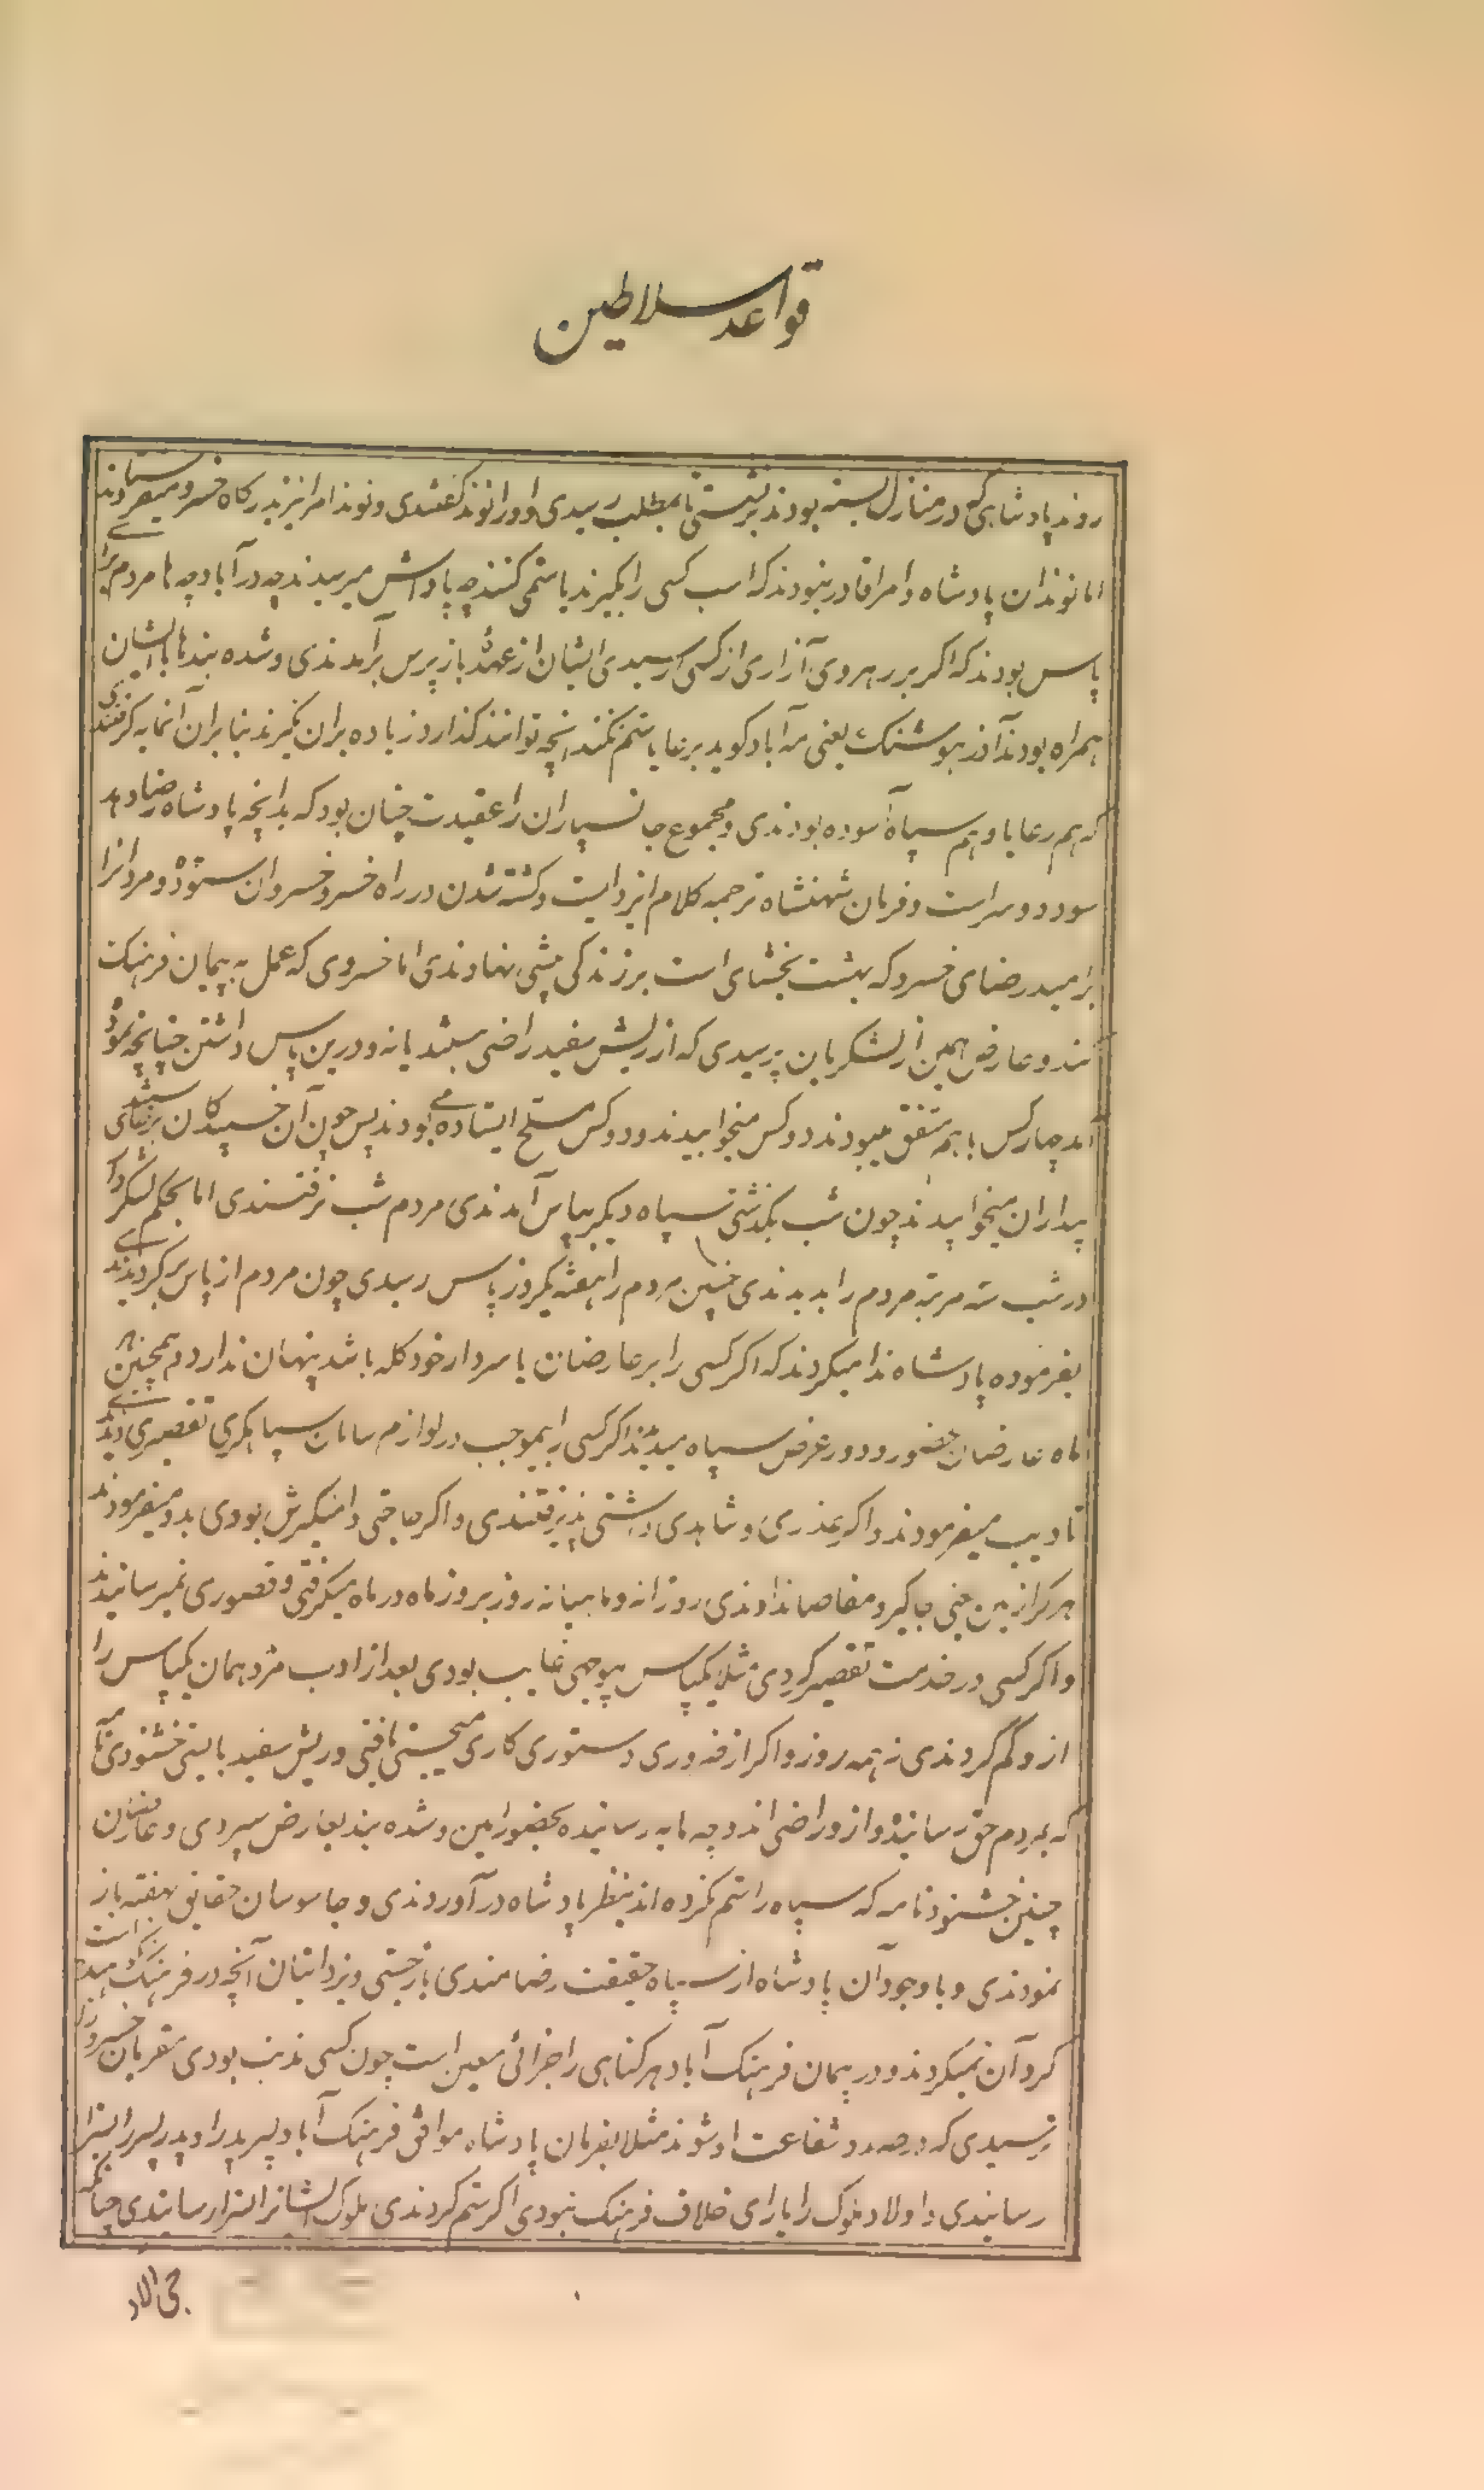 قواعد سلاطین
روند پادشاهی که در منازل بسته بودند برنشستی تا بمطلب رسیدی و او را نوند گفتندی و نوند امرا نیز بدرگاه خسرو میفرستادند
اما نوندان پادشاه و امرا قادر نبودند که اسب کسی را بگیرند یا ستمی کنند چه پاداش میرسیدند چه در آبادچه ها مردم برای
پاس بودند که اگر بر رهروی آزاری از کسی رسیدی ایشان از عهدهٔ بازپرس برآمدندی و شده بندها با ایشان
همراه بودند آذر هوشنگ یعنی مه آباد گوید بر رعایا ستم نکنند آنچه توانند گذارد زیاده بران نگیرند بنابران آنمایه گرفتندی
که هم رعایا و هم سپاه آسوده بودندی و مجموع جانسپاران را عقیدت چنان بود که بدانچه پادشاه رضا دهد
سود دو سراست و فرمان شهنشاه ترجمه کلام ایزد است و کشته شدن در راه خسرو خسروان ستوده و مردانرا
بر امید رضای خسرو که بهشت بخشای است بر زندگی پیشی نهادندی اما خسروی که عمل به پیمان فرهنگ
کند و عارض همین از لشکریان پرسیدی که از ریش سفید راضی هستند یا نه و درین پاس داشتن چنانچه نموده
آمد چهار کس با هم متفق میبودند دو کس میخوابیدند و دو کس مسلح ایستاده می بودند پس چون آن خسپیدگان برخاستندی
بیداران میخوابیدند چون شب بگذشتی سپاه دیگر بپاس آمدندی مردم شب نرفتندی اما بحکم لشکردار
در شب سه مرتبه مردم را بدیدندی چنین مردم را هفته یکروز پاس رسیدی چون مردم از پاس برگردیدندی
بفرموده پادشاه ندا میکردند که اگر کسی را بر عارضان یا سردار خود گله باشد پنهان ندارد و همچنین هر
ماه عارضان حضور و دور عرض سپاه میدیدند اگر کسی را بیموجب در لوازم سامان سپاهگری تقصیری دیدندی
تادیب میفرمودند و اگر عذری و شاهدی داشتی پذیرفتندی و اگر حاجتی دامنگیرش بودی بدو میفرمودند
هر کرا زمین جاگیر و مقاصا ندادندی روزانه و ماهیانه روز بروز ماه در ماه میگرفتی و قصوری نمیرسانیدند
و اگر کسی در خدمت تقصیر کردی مثلا یکپاس بیوجهی غایب بودی بعد از ادب مزد همان یکپاس را
ازو کم کردندی نه همه روز و اگر از دستوری کاری میجستی یافتی و ریش سفید بایستی خشنودی نامه
که بمردم حق رسانیده و ازو راضی اند و چه مایه رسانیده بحضور امین و شده بند بعارض سپردی و عارضان
چنین خشنود نامه که سپاه را ستم نکرده اند بنظر پادشاه در آوردندی و جاسوسان حقایق نهفته باز
نمودندی و با وجود آن پادشاه از سپاه حقیقت رضامندی بازجستی و یزدانیان آنچه در فرهنگ نهیست
گرد آن نمیگردند و در پیمان فرهنگ آباد هر گناهی را جزائی معین است چون کسی مذنب بودی مقربان خسرو را
نرسیدی که در صدد شفاعت او شوند مثلا بفرمان پادشاه موافق فرهنگ آباد پسر پدر را و پدر پسر را سزا
رسانیدی و اولاد ملوک را یارای خلاف فرهنگ نبودی اگر ستم کردندی ملوک ایشانرا سزا رسانیدی چنانکه
جی الاد